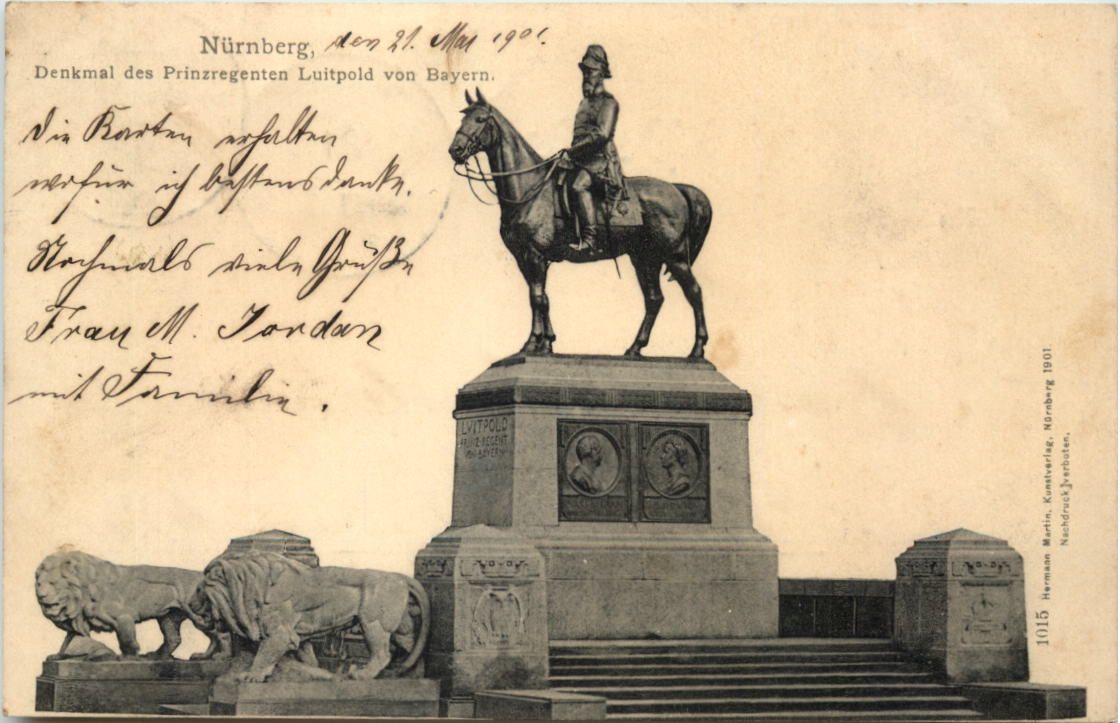 Nürnberg, den 21. Mai 1901.
Denkmal des Prinzregenten Luitpold von Bayern.
Die Karten erhalten
wofür ich bestens danke.
Nochmals viele Grüße
Frau M. Jordan
mit Familie.
LUITPOLD
PRINZ-REGENT
VON BAYERN
1015 Hermann Martin, Kunstverlag, Nürnberg 1901.
Nachdruck verboten.